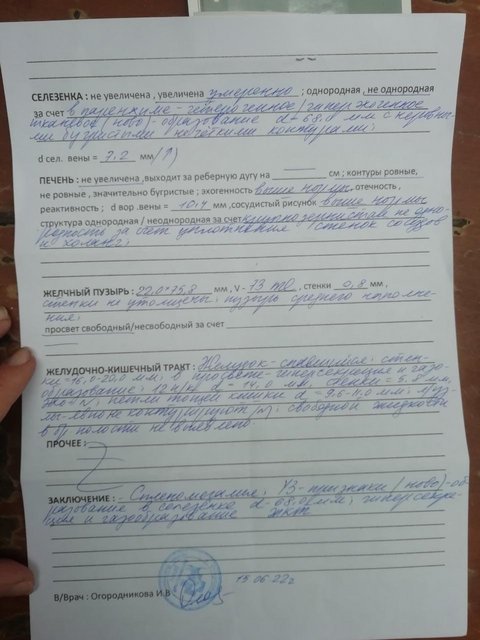 СЕЛЕЗЕНКА : не увеличена , увеличена умеренно ; однородная , не однородная
за счет в паренхиме - гетерогенное/гиперэхогенное
тканевое (ново)-образование d = 68.0 мм с неровны-
ми бугристыми нечёткими контурами;
d сел. вены = 7,2 мм/(↑)
ПЕЧЕНЬ : не увеличена ,выходит за реберную дугу на см ; контуры ровные,
не ровные , значительно бугристые ; эхогенность выше нормы, отечность ,
реактивность ; d вор .вены = 10,4 мм ,сосудистый рисунок выше нормы
структура однородная / неоднородная за счет крупнозернистая не одно-
родность за счет уплотнения стенок сосудов
и холанг;
ЖЕЛЧНЫЙ ПУЗЫРЬ : 22,0*75,8 мм , V - 73 ml , стенки 0,8 мм ,
стенки не утолщены; пузырь среднего наполне-
ния;
просвет свободный/несвободный за счет
ЖЕЛУДОЧНО-КИШЕЧНЫЙ ТРАКТ : Желудок - спавшийся; стен-
ки = 16,0-20,0 мм; в просвете - гиперсекреция и газо-
образование; 12 п/к d = 14,0 мм, стенки = 5,8 мм,
петли тощей кишки d = 9.6-11,0 мм;
не контурируют ; свободной жидкости
в б/ полости не выявлено.
ПРОЧЕЕ :
ЗАКЛЮЧЕНИЕ : Спленомегалия; УЗ-признаки (ново)-об-
разование в селезенке d = 68.0 мм; гиперсекре-
ция и газообразование ЖКТ
15 06 22г
В/Врач : Огородникова И.В